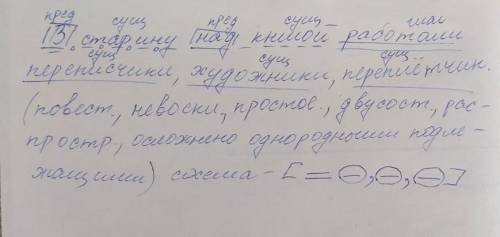 пред сущ пред сущ глаг
В старину над книгой работали
сущ сущ сущ
переписчики, художники, переплётчик.
(повест., невоскл, простое., двусост., рас-
простр., осложнено однородными подле-
жащими) схема - [ = ⊖, ⊖, ⊖ ]